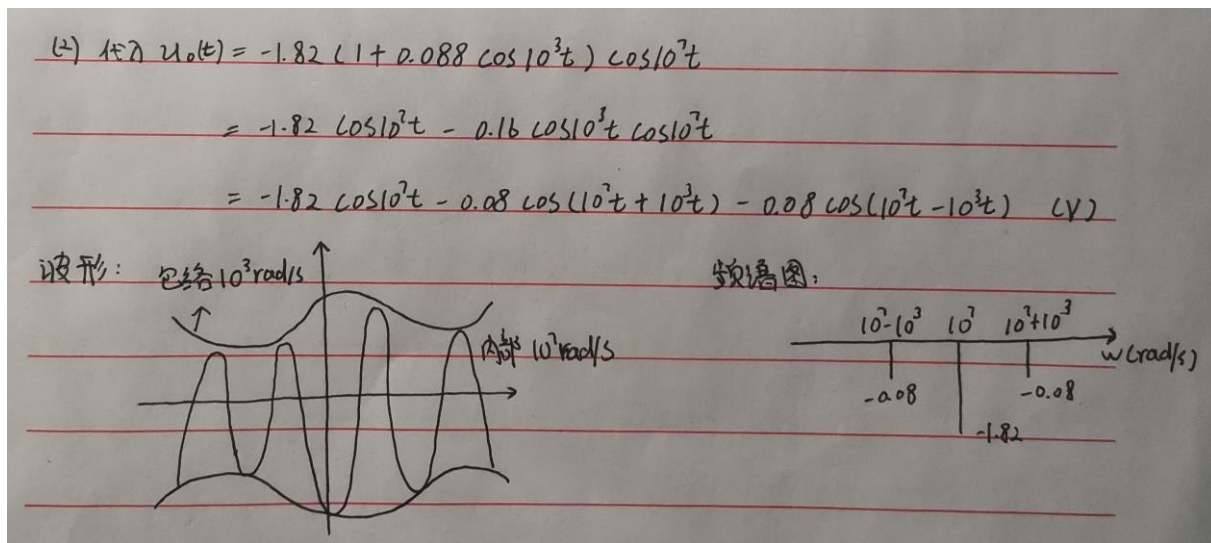 (2) 代入 u₀(t) = -1.82 (1 + 0.088 cos10³t) cos10⁷t
= -1.82 cos10⁷t - 0.16 cos10³t cos10⁷t
= -1.82 cos10⁷t - 0.08 cos(10⁷t + 10³t) - 0.08 cos(10⁷t - 10³t) (V)
波形: 包络10³rad/s
频谱图:
10⁷-10³ 10⁷ 10⁷+10³
内部 10⁷rad/s
w(rad/s)
-0.08
-0.08
-1.82